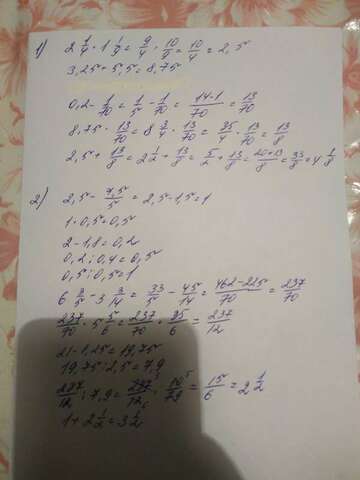 1) 2 1/4 · 1 1/9 = 9/4 · 10/9 = 10/4 = 2,5
3,25 + 5,5 = 8,75
0,2 - 1/70 = 1/5 - 1/70 = 14-1/70 = 13/70
8,75 · 13/70 = 8 3/4 · 13/70 = 35/4 · 13/70 = 13/8
2,5 + 13/8 = 2 1/2 + 13/8 = 5/2 + 13/8 = 20+13/8 = 33/8 = 4 1/8
2) 2,5 - 7,5/5 = 2,5 - 1,5 = 1
1 · 0,5 = 0,5
2 - 1,8 = 0,2
0,2 : 0,4 = 0,5
0,5 : 0,5 = 1
6 3/5 - 3 3/14 = 33/5 - 45/14 = 462-225/70 = 237/70
237/70 · 5 5/6 = 237/70 · 35/6 = 237/12
21 - 1,25 = 19,75
19,75 : 2,5 = 7,9
237/12 : 7,9 = 237/12 · 10/79 = 15/6 = 2 1/2
1 + 2 1/2 = 3 1/2